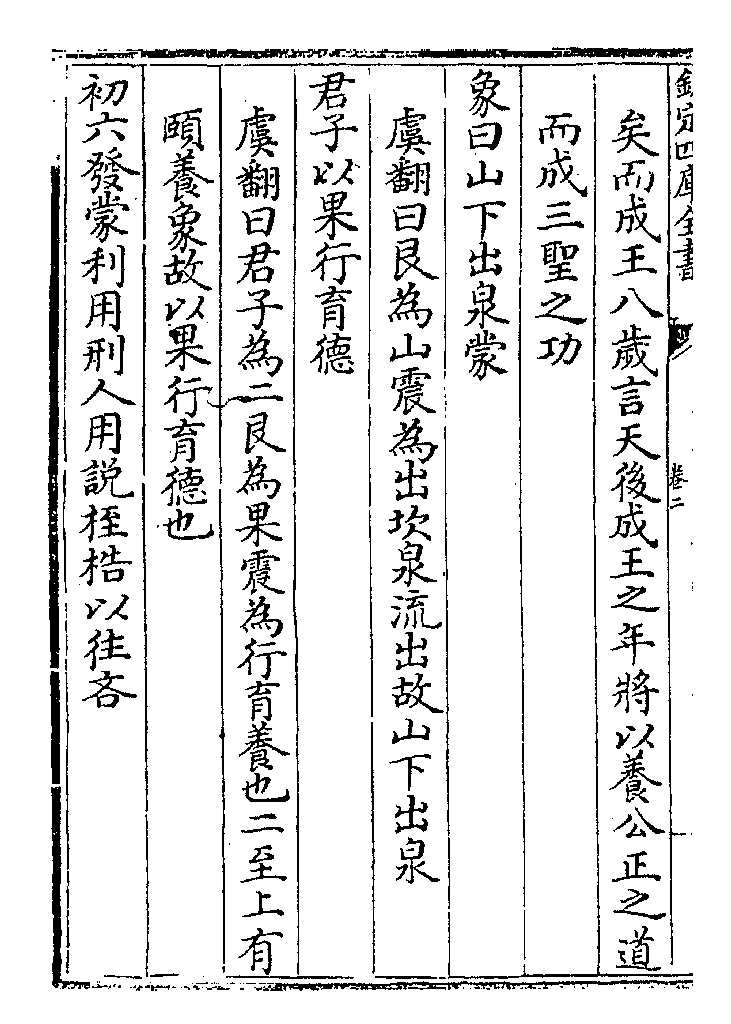 欽定四庫全書
卷二
矣而成王八歲言天後成王之年將以養公正之道
而成三聖之功
象曰山下出泉蒙
虞翻曰艮為山震為出坎泉流出故山下出泉
君子以果行育德
虞翻曰君子為二艮為果震為行育養也二至上有
頤養象故以果行育德也
初六發蒙利用刑人用説桎梏以往吝